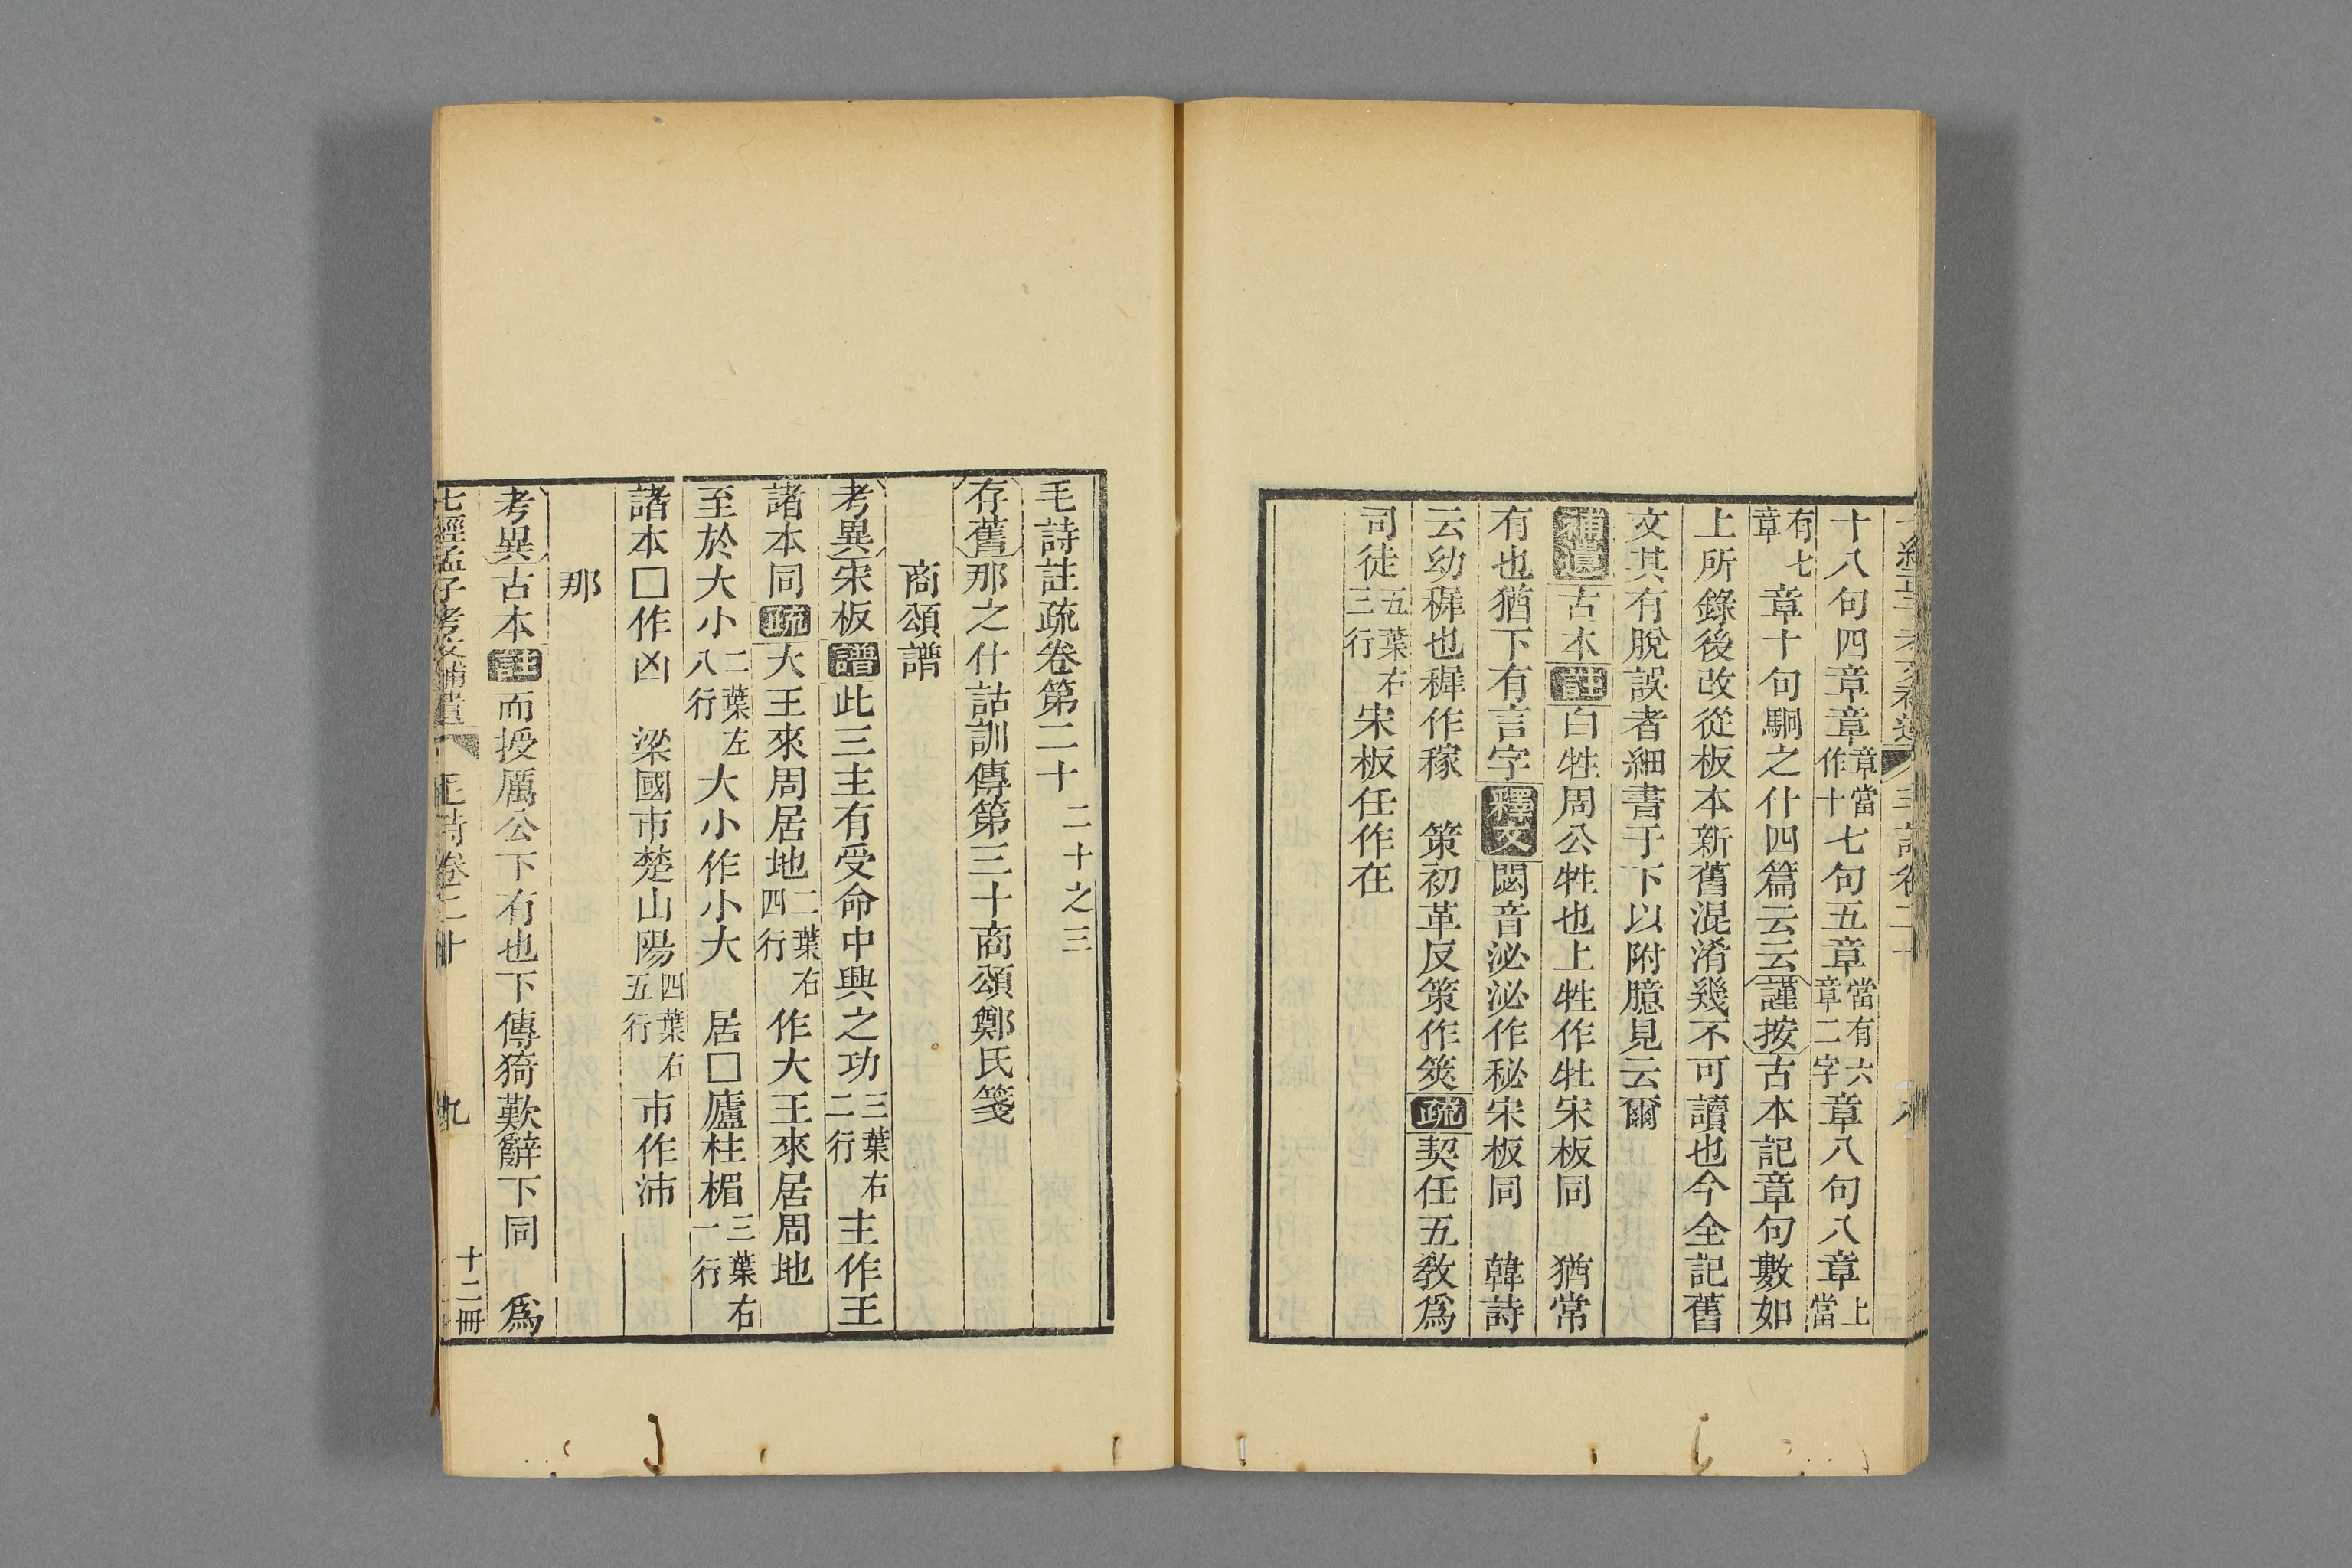 十八句四章章章當作十七句五章當有六章二字章八句八章上當
有七章章十句駉之什四篇云云謹按古本記章句數如
上所錄後改從板本新舊混淆幾不可讀也今全記舊
文其有脫誤者細書于下以附臆見云爾
補遺古本註白牲周公牲也上牲作牡宋板同　猶常
有也猶下有言字釋文閟音泌泌作秘宋板同　韓詩
云幼稺也稺作稼　策初革反策作筴疏契任五敎爲
司徒五葉右三行宋板任作在
毛詩註疏卷第二十　二十之三
存舊那之什詁訓傳第三十商頌鄭氏箋
商頌譜
考異宋板譜此三主有受命中興之功三葉右二行主作王
諸本同疏大王來周居地二葉右四行作大王來居周地
至於大小二葉左八行大小作小大　居□廬柱楣三葉右一行
諸本□作凶　梁國市楚山陽四葉右五行市作沛
那
考異古本註而授厲公下有也下傳猗歎辭下同　爲
七經孟子考文補遺　毛詩卷二十　九　十二冊